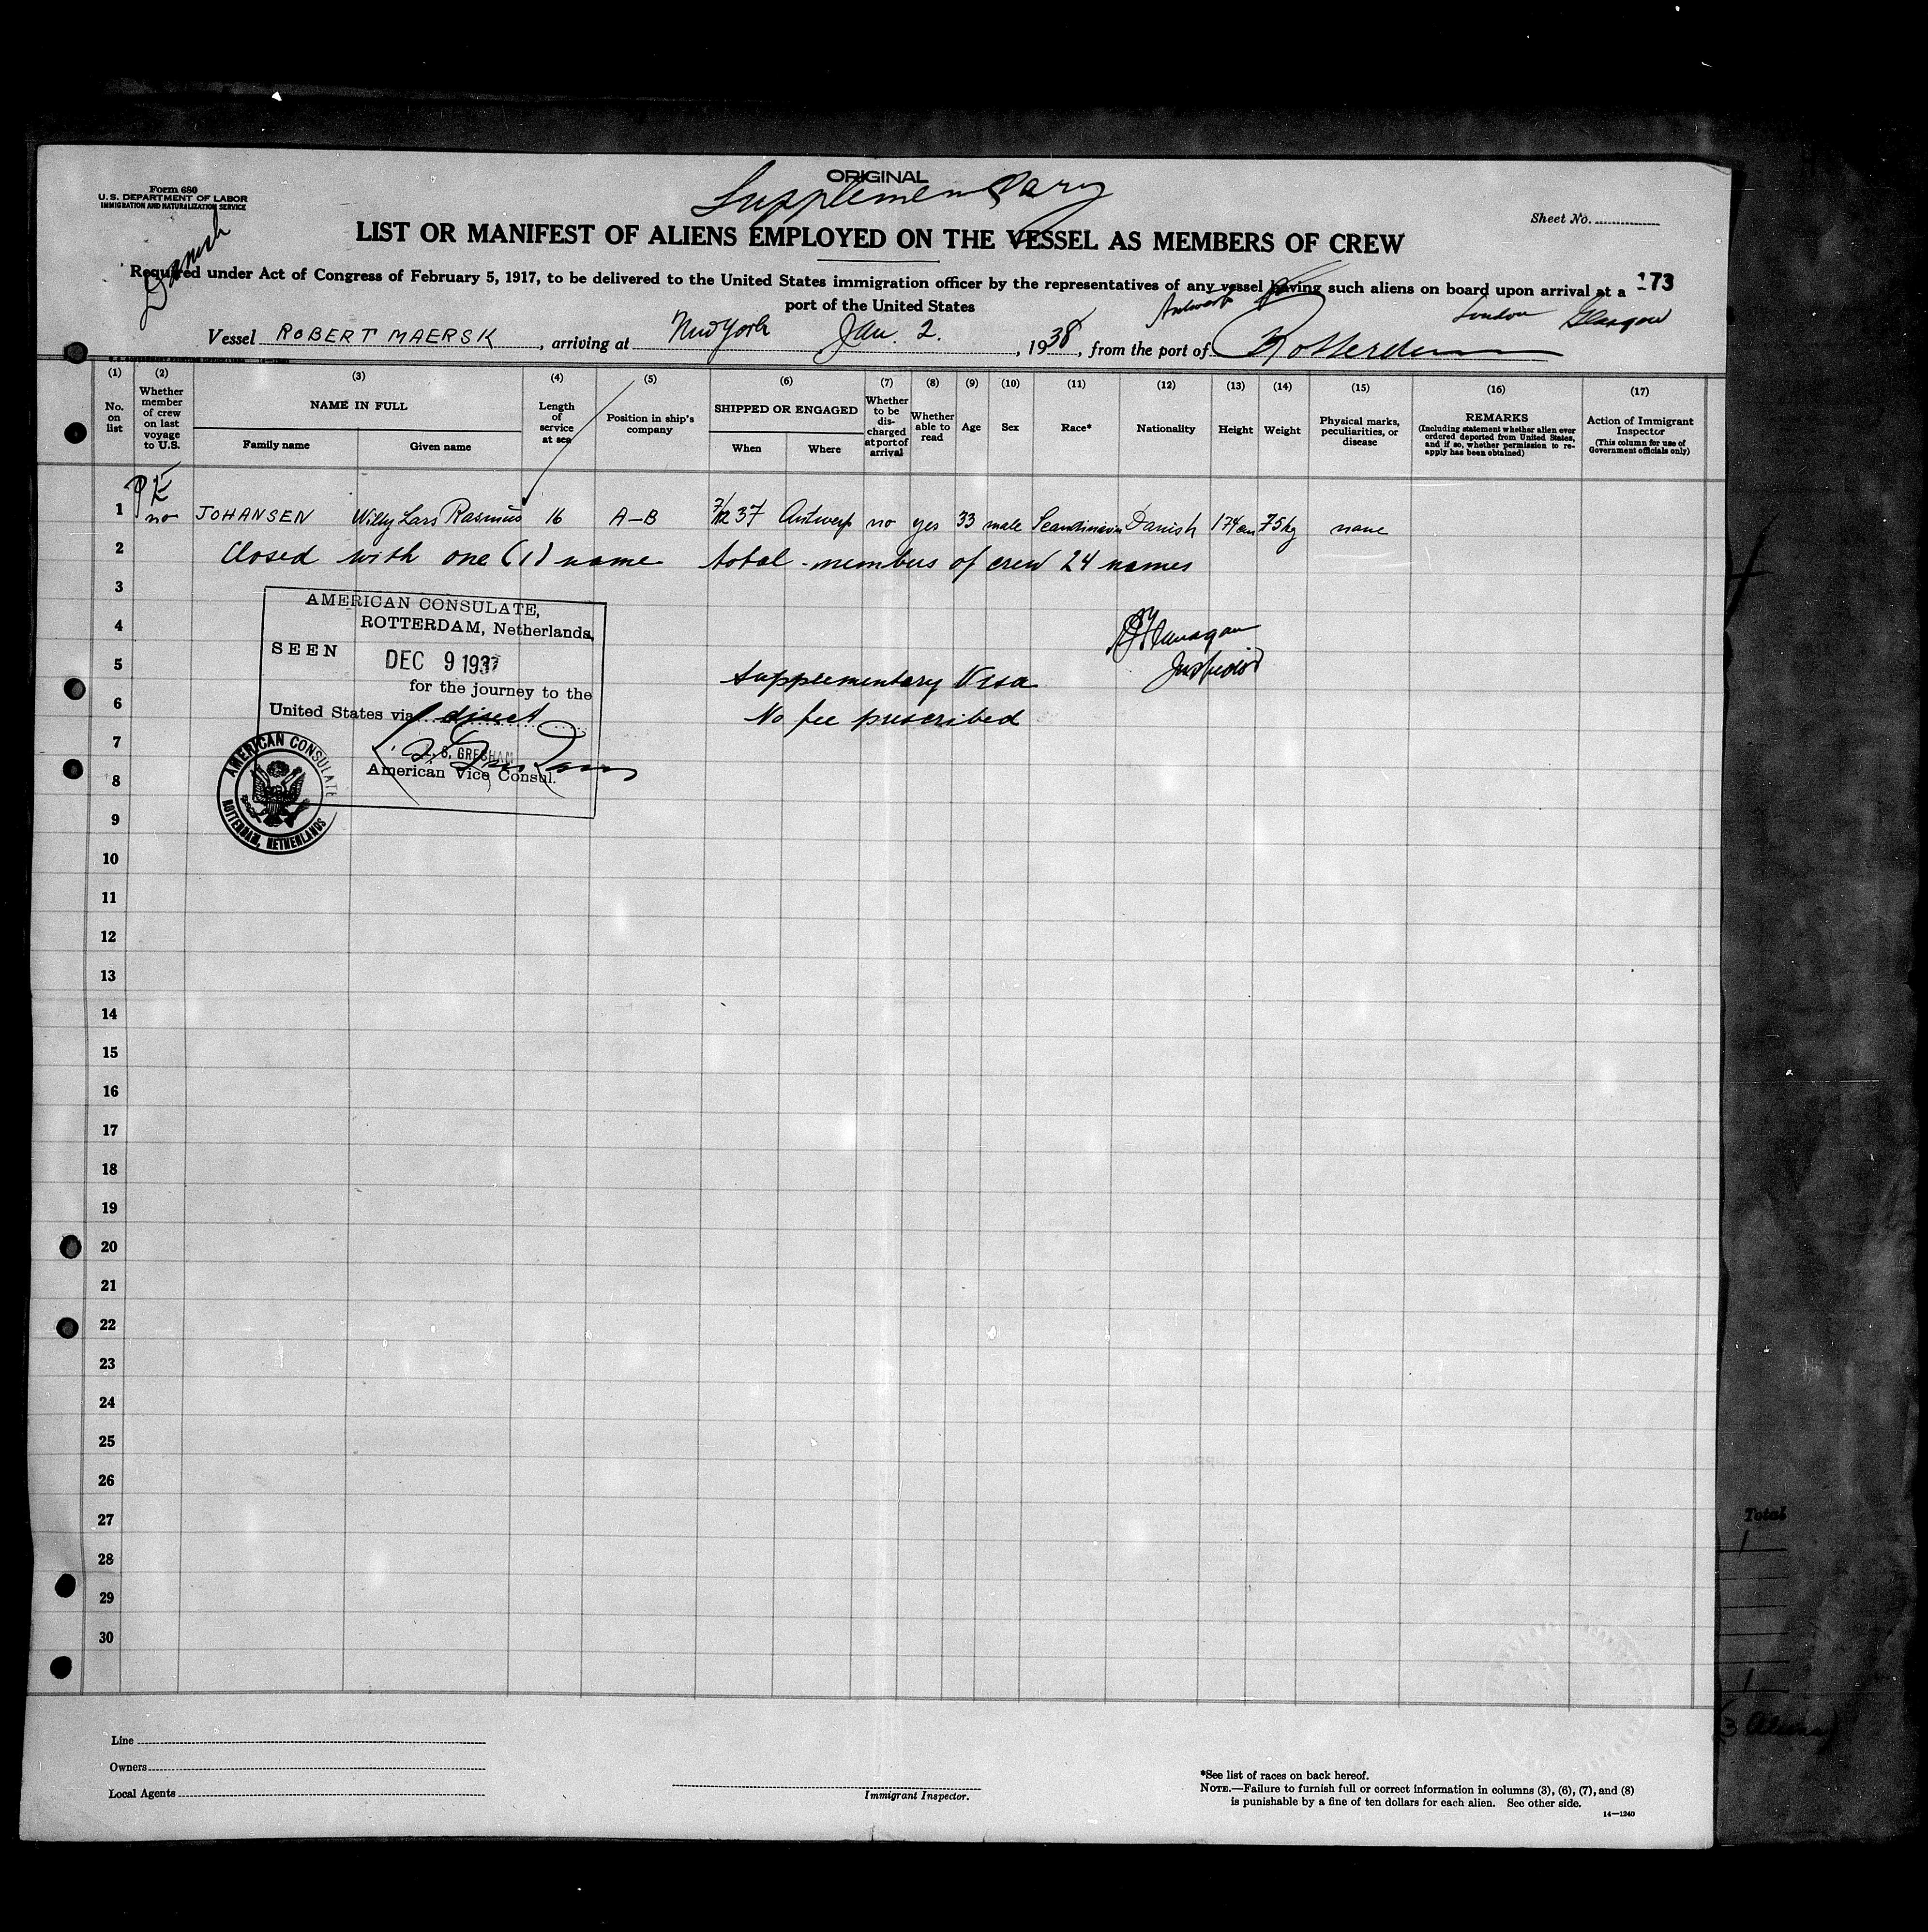 ORIGINAL
Supplementary
Form 680
U.S. DEPARTMENT OF LABOR
IMMIGRATION AND NATURALIZATION SERVICE
Danish
Sheet No.
LIST OR MANIFEST OF ALIENS EMPLOYED ON THE VESSEL AS MEMBERS OF CREW
Required under Act of Congress of February 5, 1917, to be delivered to the United States immigration officer by the representatives of any vessel having such aliens on board upon arrival at a
port of the United States
173
Antwerp London Glasgow
Vessel ROBERT MAERSK, arriving at New York Jan. 2., 1938, from the port of Rotterdam
(1) No. on list
(2) Whether member of crew on last voyage to U.S.
(3) NAME IN FULL
Family name Given name
(4) Length of service at sea
(5) Position in ship's company
(6) SHIPPED OR ENGAGED
When Where
(7) Whether to be discharged at port of arrival
(8) Whether able to read
(9) Age
(10) Sex
(11) Race*
(12) Nationality
(13) Height
(14) Weight
(15) Physical marks, peculiarities, or disease
(16) REMARKS
(Including statement whether alien ever ordered deported from United States, and if so, whether permission to reapply has been obtained)
(17) Action of Immigrant Inspector
(This column for use of Government officials only)
1 no JOHANSEN Willy Lars Rasmus 16 A-B 7/12 37 Antwerp no yes 33 male Scandinavian Danish 174 cm 75 kg none
2 Closed with one (1) name total members of crew 24 names
3
4
5
6
7
8
9
10
11
12
13
14
15
16
17
18
19
20
21
22
23
24
25
26
27
28
29
30
AMERICAN CONSULATE,
ROTTERDAM, Netherlands,
SEEN
DEC 9 1937
for the journey to the
United States via direct
S. GRESHAM
American Vice Consul.
AMERICAN CONSULATE
ROTTERDAM, NETHERLANDS
Supplementary Visa
No fee prescribed
Flanagan
Inspector
Line
Owners
Local Agents
Immigrant Inspector.
*See list of races on back hereof.
NOTE.—Failure to furnish full or correct information in columns (3), (6), (7), and (8)
is punishable by a fine of ten dollars for each alien. See other side.
14—1240
Total
1
1